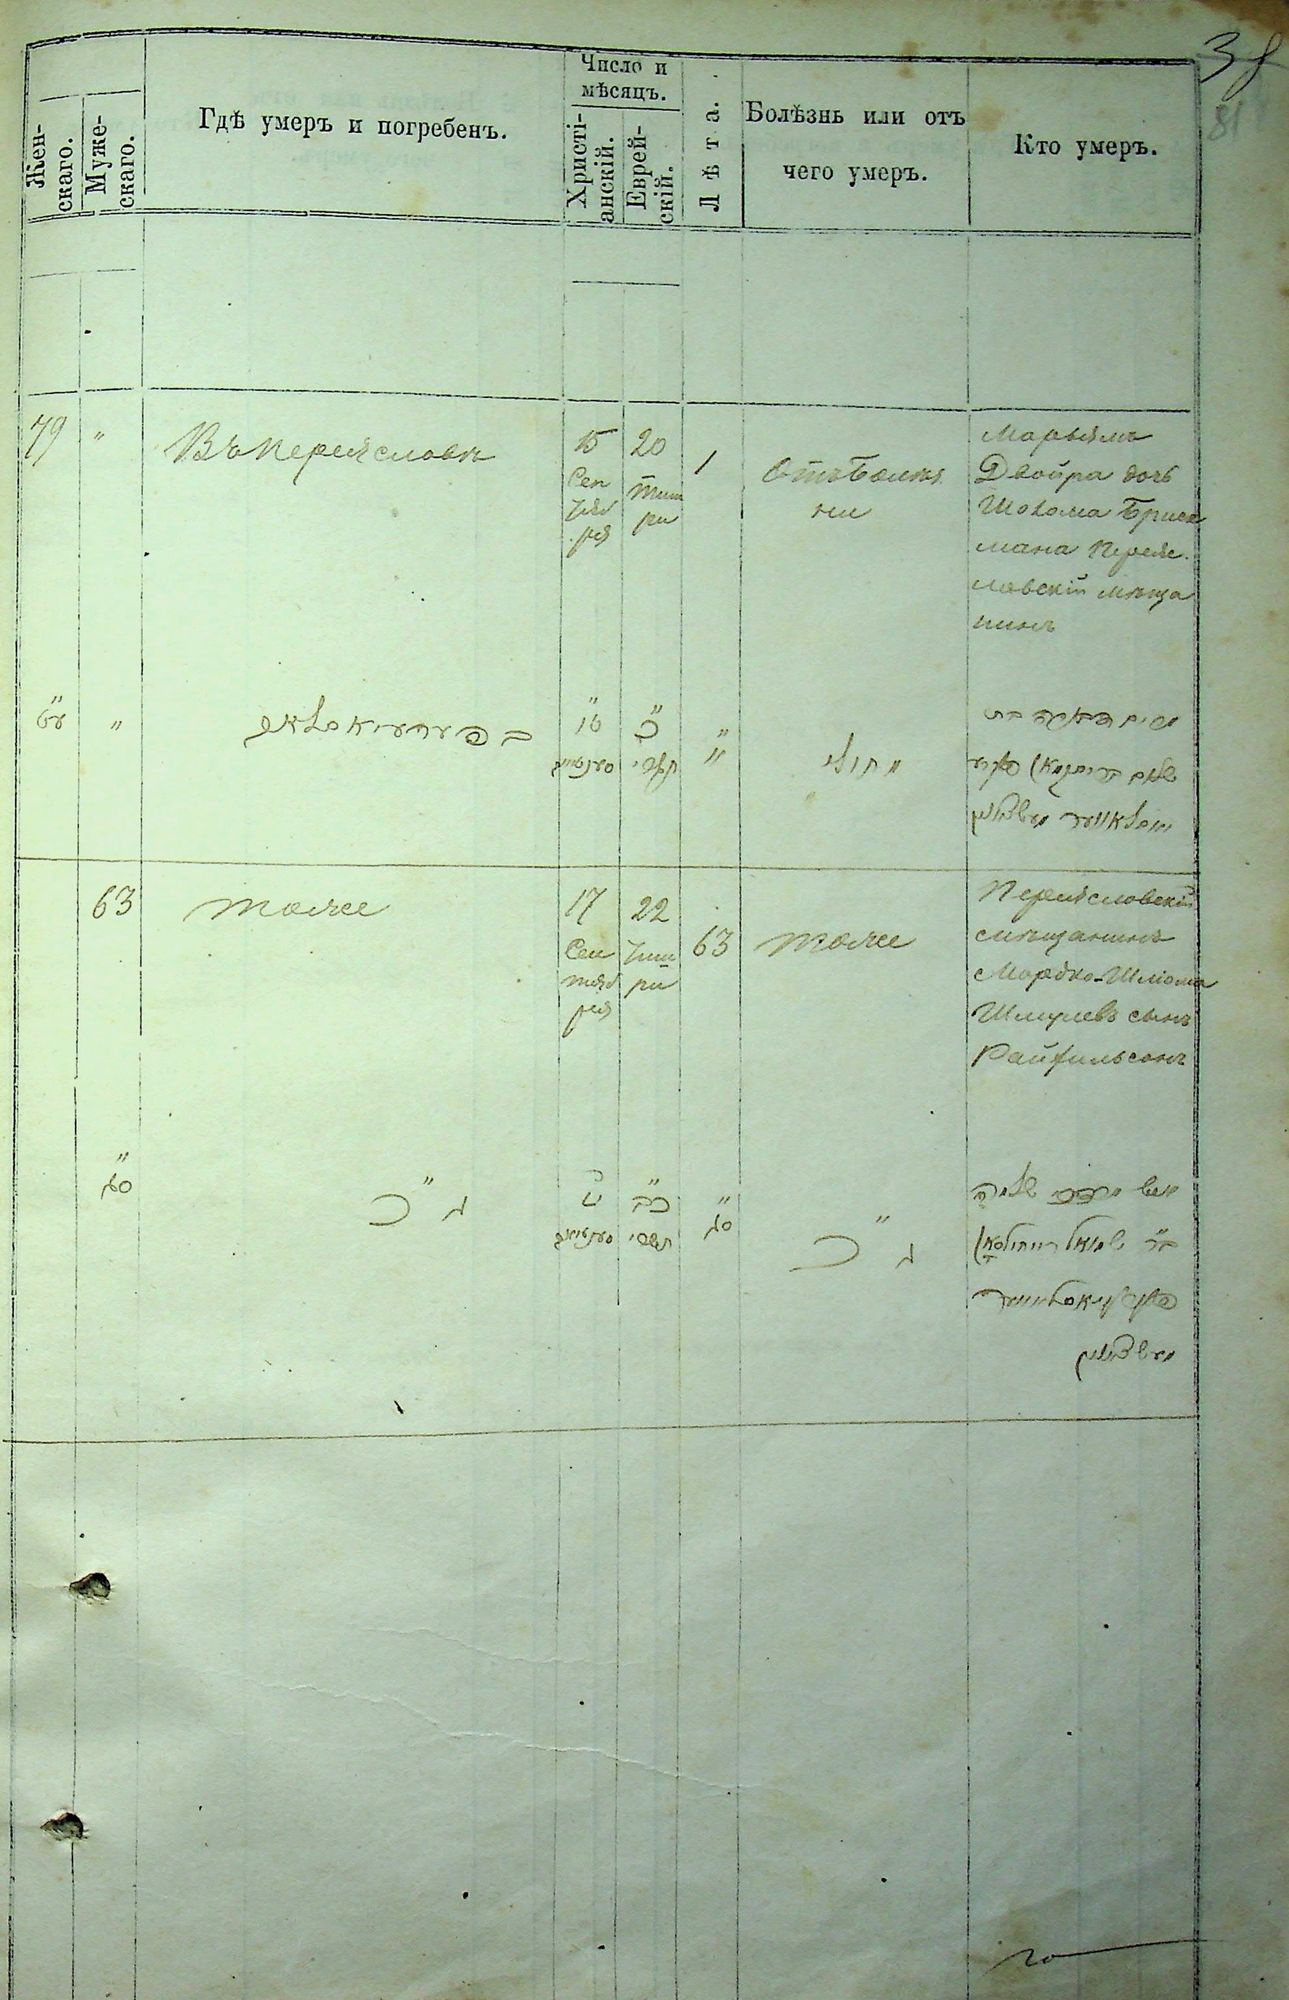 38
81
Жен-
скаго.
Муже-
скаго.
Гдѣ умеръ и погребенъ.
Число и
мѣсяцъ.
Христі-
анскій.
Еврей-
скій.
Лѣта.
Болѣзнь или отъ
чего умеръ.
Кто умеръ.
79
"
Въ Переяславѣ
15
Сен
тяб
ря
20
Тиш
ри
1
Отъ Болѣз
ни
Марьямъ
Двойра дочь
Шолома Брис
мана Переяс
лавскій мѣща
нинъ
ע"ט
"
ט"ו
כ"
תשרי
בת
63
тоже
17
Сен
тяб
ря
22
Тиш
ри
63
тоже
Переяславскій
мѣщанинъ
Мордко-Шлиома
Шмулевъ сынъ
Райхильсонъ
ס"ג
ג"כ
כ"ב
תשרי
ס"ג
ג"כ
איש מרדכי שלמה
ב"ר שמואל